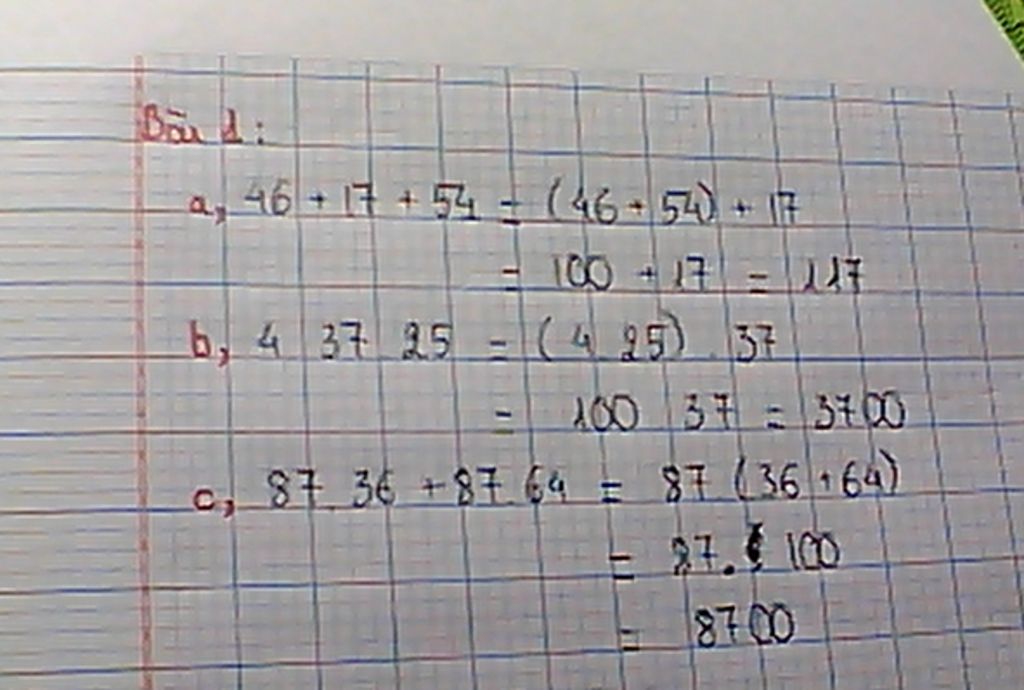 Bài 1:
a, 46 + 17 + 54 = (46 + 54) + 17
= 100 + 17 = 117
b, 4 37 25 = (4 25) . 37
= 100 37 = 3700
c, 87 36 + 87 64 = 87 (36 + 64)
= 87. 100
= 8700